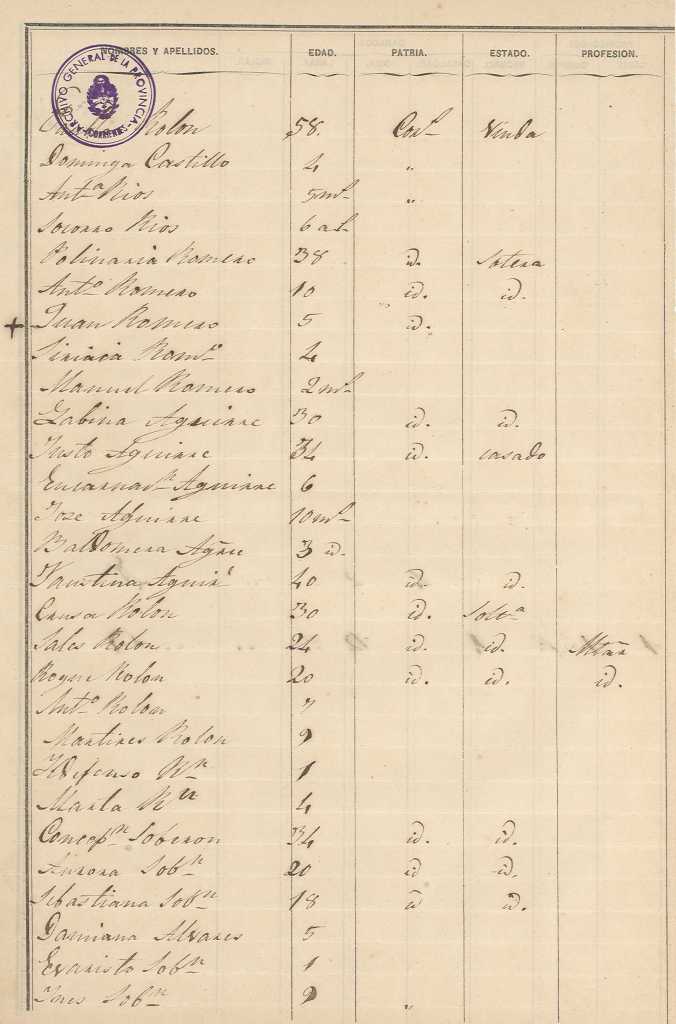 NOMBRES Y APELLIDOS. EDAD. PATRIA. ESTADO. PROFESION.
ARCHIVO GENERAL DE LA PROVINCIA
CORRIENTES
Rolon 58 Corˢ Viuda
Dominga Castillo 4 "
Antᵃ Rios 5 mˢ "
Socorro Rios 6 aˢ
Polinaria Romero 38 id. Soltera
Antᵒ Romero 10 id. id.
+ Juan Romero 5 id.
Siriaca Romᵒ 4
Manuel Romero 2 mˢ
Gabina Aguirre 30 id. id.
Justo Aguirre 34 id. casado
Encarnacⁿ Aguirre 6
Jose Aguirre 10 mˢ
Baldomera Agᵉ 3 id.
Faustina Aguirᵉ 40 id. id.
Rolon 30 id. Solᵃ
Sales Rolon 24 id. id.
Roque Rolon 20 id. id. id.
Antᵒ Rolon 7
Martires Rolon 9
Ildefonso Rⁿ 1
Marta Rⁿ 4
Concepⁿ Soberon 34 id. id.
Aurora Sobⁿ 20 id id.
Sebastiana Sobⁿ 18 id id.
Damiana Alvares 5
Evaristo Sobⁿ 1
Ines Sobⁿ 9 "